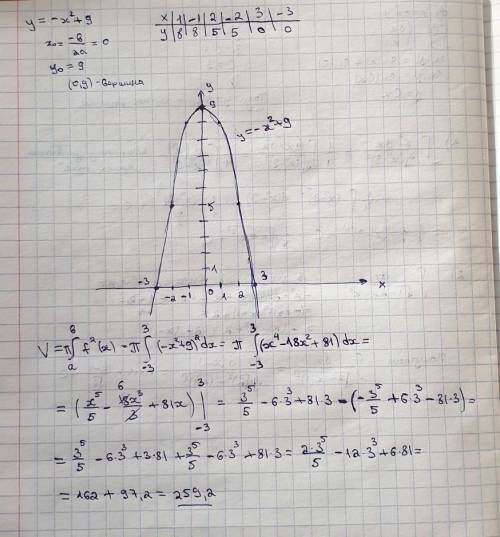 y = -x²+9
x₀ = -b/2a = 0
y₀ = 9
(0,9) - вершина
x | 1 | -1 | 2 | -2 | 3 | -3
y | 8 | 8 | 5 | 5 | 0 | 0
y
9
y = -x²+9
5
1
-3 -2 -1 0 1 2 3 x
V = π∫ₐᵇ f²(x) = π∫₋₃³ (-x²+9)² dx = π ∫₋₃³ (x⁴-18x²+81) dx =
= (x⁵/5 - 18x³/3 6 + 81x) |₋₃³ = 3⁵/5 - 6·3³ + 81·3 - (-3⁵/5 + 6·3³ - 81·3) =
= 3⁵/5 - 6·3³ + 3·81 + 3⁵/5 - 6·3³ + 81·3 = 2·3⁵/5 - 12·3³ + 6·81 =
= 162 + 97,2 = 259,2